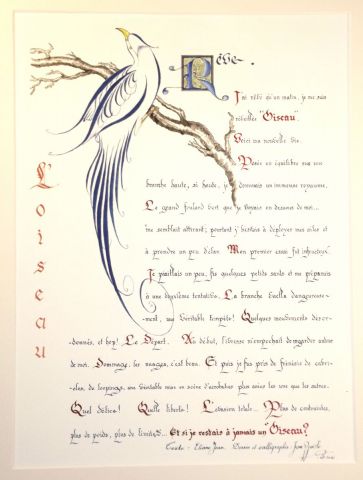 L'oiseau
Rêve.
J'ai rêvé qu'un matin, je me suis
réveillée "Oiseau".
Voici ma nouvelle vie.
Posée en équilibre sur une
branche haute, si haute, je dominais un immense royaume.
Le grand foulard vert que je voyais en dessous de moi...
me semblait attirant ; pourtant j'hésitais à déployer mes ailes et
à prendre un peu d'élan. Mon premier essai fut infructueux.
Je piaillais un peu, fis quelques petits sauts et me préparais
à une deuxième tentative. La branche oscilla dangereuse-
ment, un véritable tempête ! Quelques mouvements désor-
donnés, et hop ! Le Départ. Au début, l'ivresse m'empêchait de regarder autour
de moi. Dommage, les nuages, c'est beau. Et puis je fus prise de frénésie de cabri-
oles, de loopings, une véritable mise en scène d'acrobaties plus osées les unes que les autres.
Quel délice ! Quelle liberté ! L'évasion totale... Plus de contraintes,
plus de poids, plus de limites... Et si je restais à jamais un "Oiseau" ?
Texte : Eliane Jean. Dessin et calligraphie :